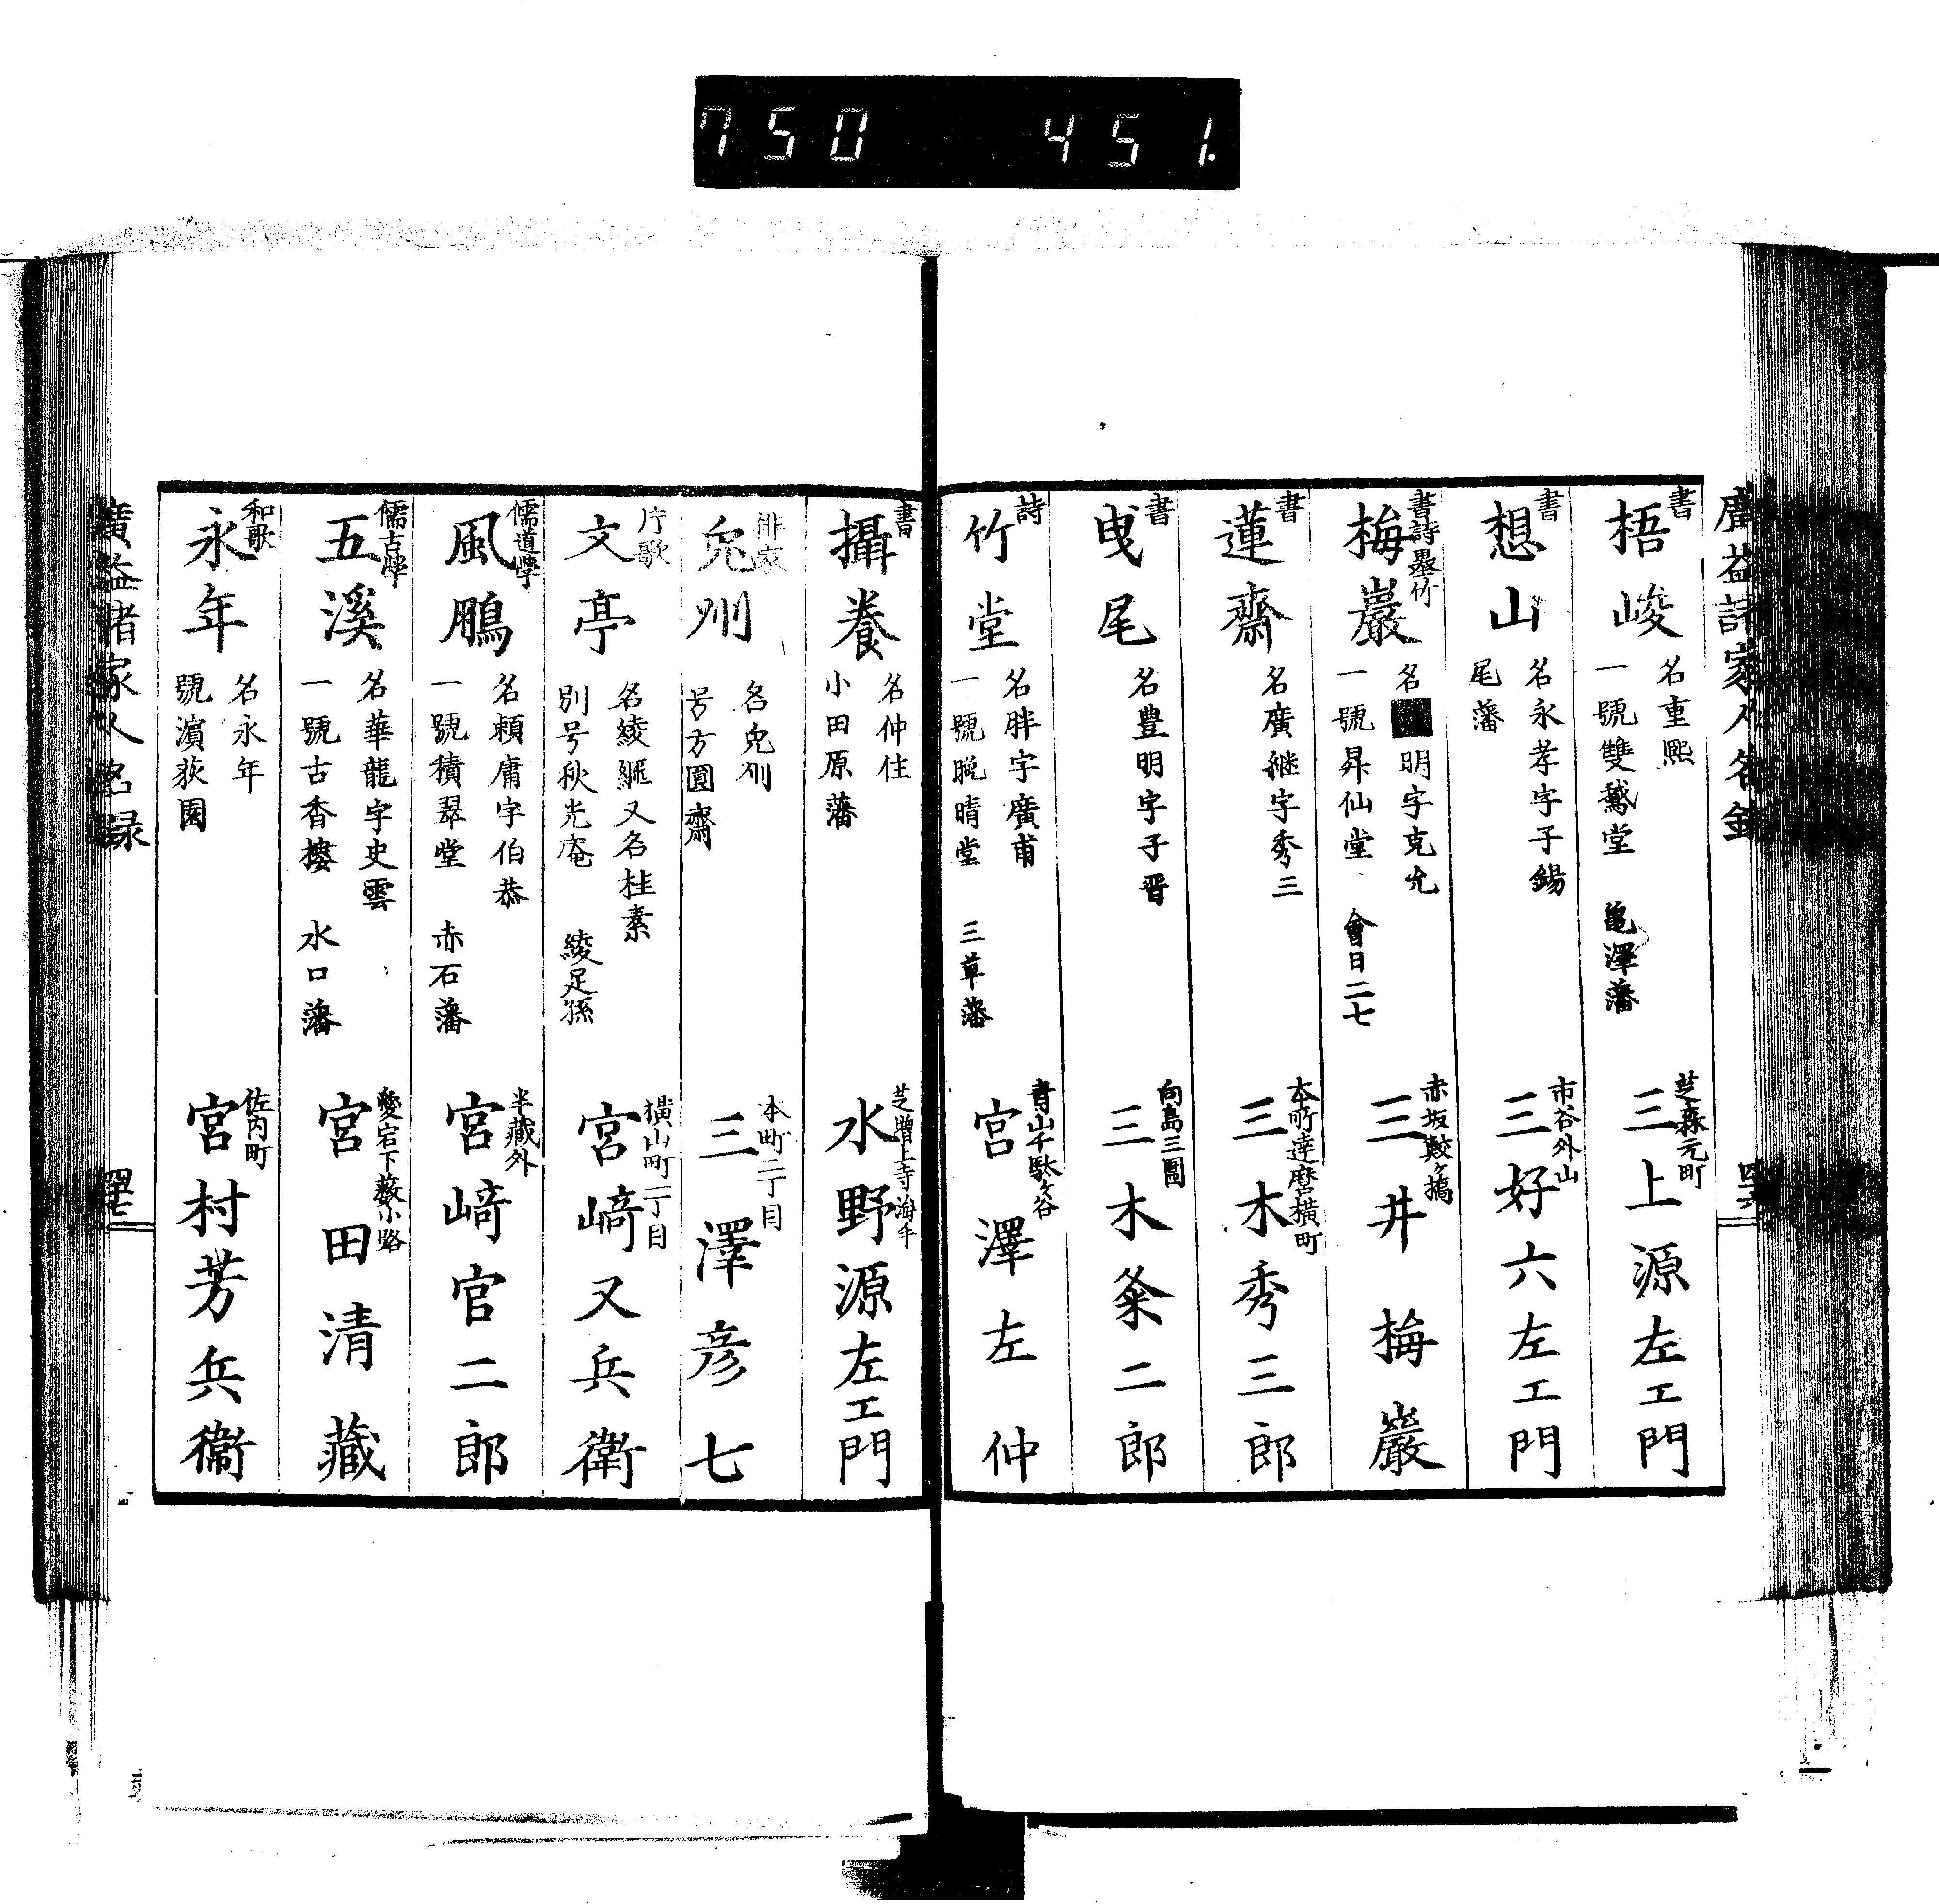 750 451.
廣益諸家人名録
書
梧峻
名重熙
一號雙鵞堂 亀澤藩
芝森元町
三上源左エ門
書
想山
名永孝字子錫
尾藩
市谷外山
三好六左エ門
書詩墨竹
梅巖
名 明字克允
一號昇仙堂 會日二七
赤坂鮫ヶ橋
三井梅巖
書
蓮齋
名廣継字秀三
本所達磨横町
三木秀三郎
書
曳尾
名豊明字子晋
向島三圍
三木粂二郎
詩
竹堂
名胖字廣甫
一號晩晴堂 三草藩
青山千駄ヶ谷
宮澤左仲
書
攝養
名仲住
小田原藩
芝増上寺海手
水野源左エ門
俳家
兎州
名兎州
号方圓齋
本町二丁目
三澤彦七
片歌
文亭
名綾 又名桂素
別号秋光庵 綾足孫
横山町二丁目
宮﨑又兵衛
儒道學
風鵬
名頼庸字伯恭
一號積翠堂 赤石藩
半藏外
宮﨑官二郎
儒古學
五溪
名華龍字史雲
一號古香樓 水口藩
愛宕下薮小路
宮田清藏
和歌
永年
名永年
號濵荻園
佐内町
宮村芳兵衞
廣益諸家人名録